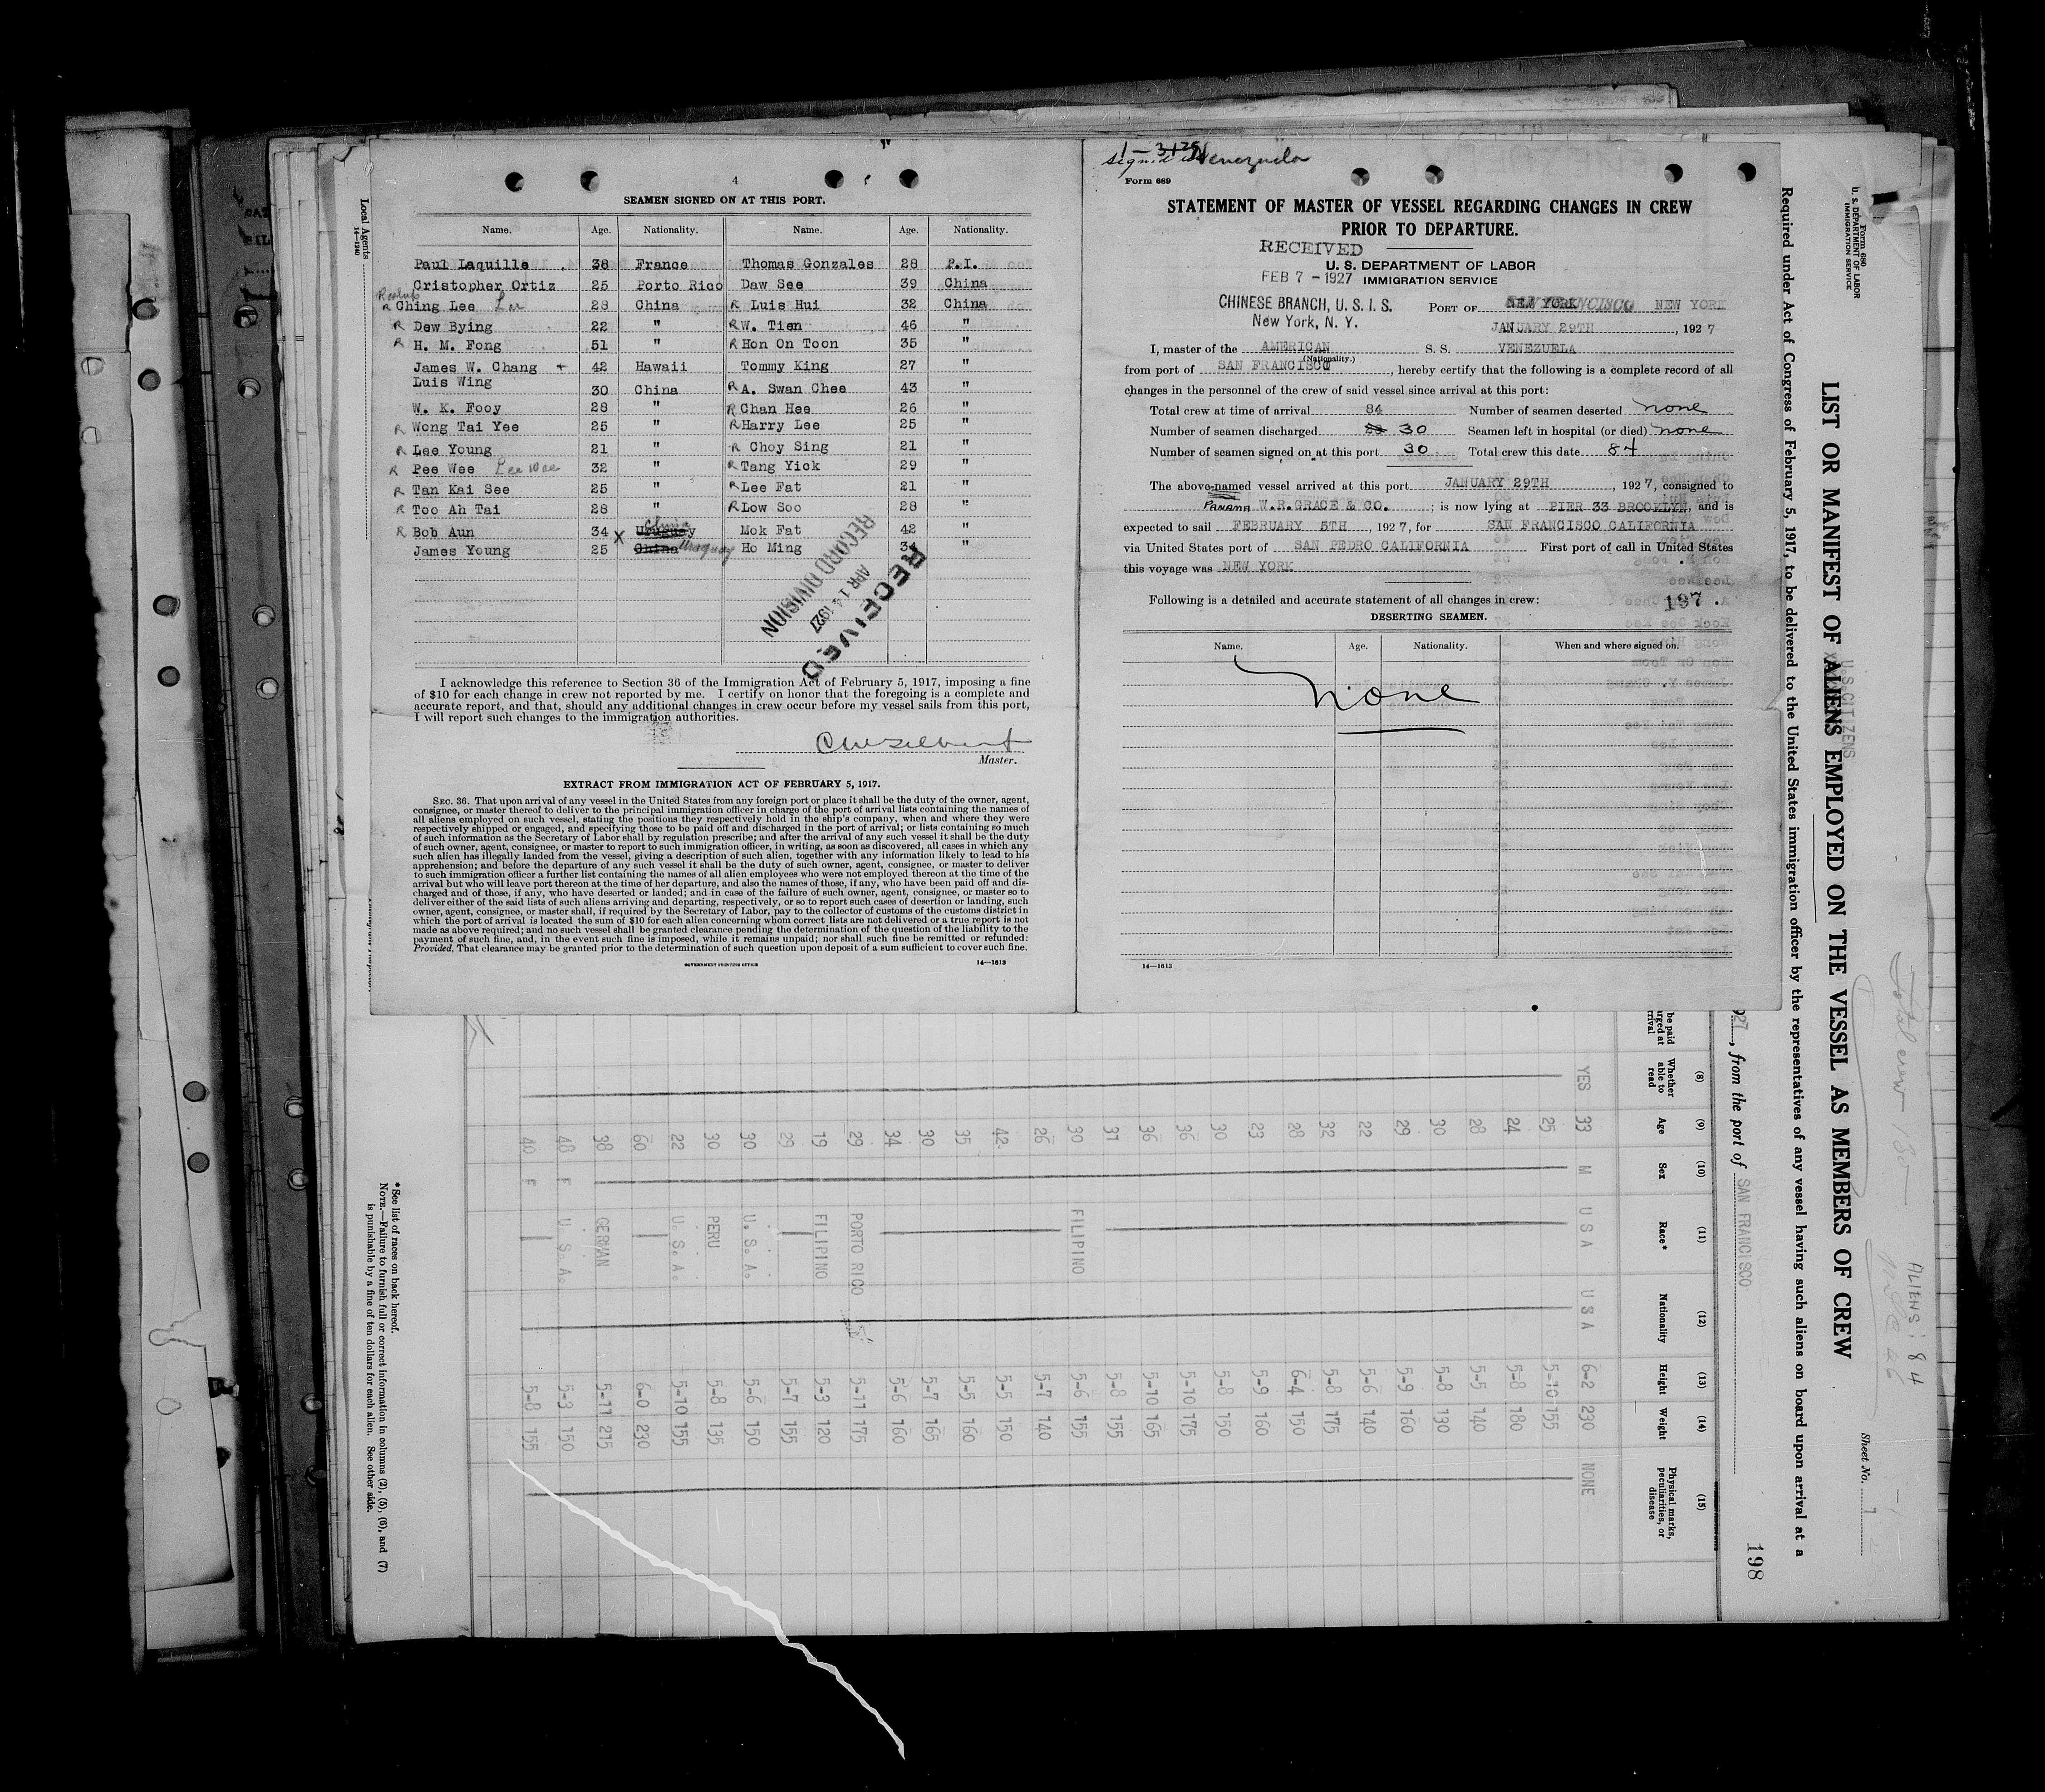 4
SEAMEN SIGNED ON AT THIS PORT.
Name. Age. Nationality. Name. Age. Nationality.
Paul Laquille 38 France Thomas Gonzales 28 P.I.
Cristopher Ortiz 25 Porto Rico Daw See 39 China
R Ching Lee Lee 28 China R Luis Hui 32 China
R Dew Bying 22 " R W. Tien 46 "
R H. M. Fong 51 " R Hon On Toon 35 "
James W. Chang + 42 Hawaii Tommy King 27 "
Luis Wing 30 China R A. Swan Chee 43 "
W. K. Fooy 28 " R Chan Hee 26 "
R Wong Tai Yee 25 " R Harry Lee 25 "
R Lee Young 21 " R Choy Sing 21 "
R Pee Wee Lee Wee 32 " R Tang Yick 29 "
R Tan Kai See 25 " R Lee Fat 21 "
R Too Ah Tai 28 " R Low Soo 28 "
R Bob Aun 34 X Uruguay China Mok Fat 42 "
James Young 25 China Uruguay Ho Ming 34 "
RECEIVED
APR 14 1927
RECORD DIVISION
I acknowledge this reference to Section 36 of the Immigration Act of February 5, 1917, imposing a fine
of $10 for each change in crew not reported by me. I certify on honor that the foregoing is a complete and
accurate report, and that, should any additional changes in crew occur before my vessel sails from this port,
I will report such changes to the immigration authorities.
Master.
EXTRACT FROM IMMIGRATION ACT OF FEBRUARY 5, 1917.
SEC. 36. That upon arrival of any vessel in the United States from any foreign port or place it shall be the duty of the owner, agent,
consignee, or master thereof to deliver to the principal immigration officer in charge of the port of arrival lists containing the names of
all aliens employed on such vessel, stating the positions they respectively hold in the ship's company, when and where they were
respectively shipped or engaged, and specifying those to be paid off and discharged in the port of arrival; or lists containing so much
of such information as the Secretary of Labor shall by regulation prescribe; and after the arrival of any such vessel it shall be the duty
of such owner, agent, consignee, or master to report to such immigration officer, in writing, as soon as discovered, all cases in which any
such alien has illegally landed from the vessel, giving a description of such alien, together with any information likely to lead to his
apprehension; and before the departure of any such vessel it shall be the duty of such owner, agent, consignee, or master to deliver
to such immigration officer a further list containing the names of all alien employees who were not employed thereon at the time of the
arrival but who will leave port thereon at the time of her departure, and also the names of those, if any, who have been paid off and dis-
charged and of those, if any, who have deserted or landed; and in case of the failure of such owner, agent, consignee, or master so to
deliver either of the said lists of such aliens arriving and departing, respectively, or so to report such cases of desertion or landing, such
owner, agent, consignee, or master shall, if required by the Secretary of Labor, pay to the collector of customs of the customs district in
which the port of arrival is located the sum of $10 for each alien concerning whom correct lists are not delivered or a true report is not
made as above required; and no such vessel shall be granted clearance pending the determination of the question of the liability to the
payment of such fine, and, in the event such fine is imposed, while it remains unpaid; nor shall such fine be remitted or refunded:
Provided, That clearance may be granted prior to the determination of such question upon deposit of a sum sufficient to cover such fine.
GOVERNMENT PRINTING OFFICE 14—1613
Local Agents
14-1240
Venezuela
Form 689
STATEMENT OF MASTER OF VESSEL REGARDING CHANGES IN CREW
PRIOR TO DEPARTURE.
RECEIVED
U. S. DEPARTMENT OF LABOR
FEB 7 - 1927 IMMIGRATION SERVICE
CHINESE BRANCH, U. S. I. S.
New York, N. Y.
PORT OF NEW YORK
JANUARY 29TH, 1927
I, master of the AMERICAN S. S. VENEZUELA
(Nationality.)
from port of SAN FRANCISCO, hereby certify that the following is a complete record of all
changes in the personnel of the crew of said vessel since arrival at this port:
Total crew at time of arrival 84 Number of seamen deserted none
Number of seamen discharged 30 Seamen left in hospital (or died) none
Number of seamen signed on at this port 30 Total crew this date 84
The above-named vessel arrived at this port JANUARY 29TH, 1927, consigned to
PANAMA W.R.GRACE & CO. ; is now lying at PIER 33 BROOKLYN, and is
expected to sail FEBRUARY 5TH, 1927, for SAN FRANCISCO CALIFORNIA
via United States port of SAN PEDRO CALIFORNIA First port of call in United States
this voyage was NEW YORK.
Following is a detailed and accurate statement of all changes in crew: 197
DESERTING SEAMEN.
Name. Age. Nationality. When and where signed on.
none
14—1613
Form 680
U. S. DEPARTMENT OF LABOR
IMMIGRATION SERVICE
U.S. CITIZENS
LIST OR MANIFEST OF ALIENS EMPLOYED ON THE VESSEL AS MEMBERS OF CREW
Required under Act of Congress of February 5, 1917, to be delivered to the United States immigration officer by the representatives of any vessel having such aliens on board upon arrival at a
Total crew
ALIENS: 84
Sheet No. 1
27, from the port of SAN FRANCISCO
198
(8) (9) (10) (11) (12) (13) (14) (15)
Whether able to read Age Sex Race* Nationality Height Weight Physical marks, peculiarities, or disease
YES 33 M U S A U S A 6-2 230 NONE
25 5-10 155
24 5-8 180
28 5-5 140
30 5-8 130
29 5-9 160
22 5-6 140
32 5-8 175
28 6-4 150
23 5-9 160
30 5-8 150
36 5-10 175
36 5-10 165
31 5-8 155
30 FILIPINO 5-6 155
26 5-7 140
42 5-5 150
35 5-5 160
30 5-7 165
34 5-6 160
29 PORTO RICO 5-11 175
19 FILIPINO 5-3 120
29 5-7 155
30 U. S. A. 5-6 150
30 PERU 5-8 135
22 U. S. A. 5-10 155
60 6-0 230
38 GERMAN 5-11 215
48 F U. S. A. 5-3 150
40 F 5-8 155
*See list of races on back hereof.
NOTE.—Failure to furnish full or correct information in columns (2), (5), (6), and (7)
is punishable by a fine of ten dollars for each alien. See other side.